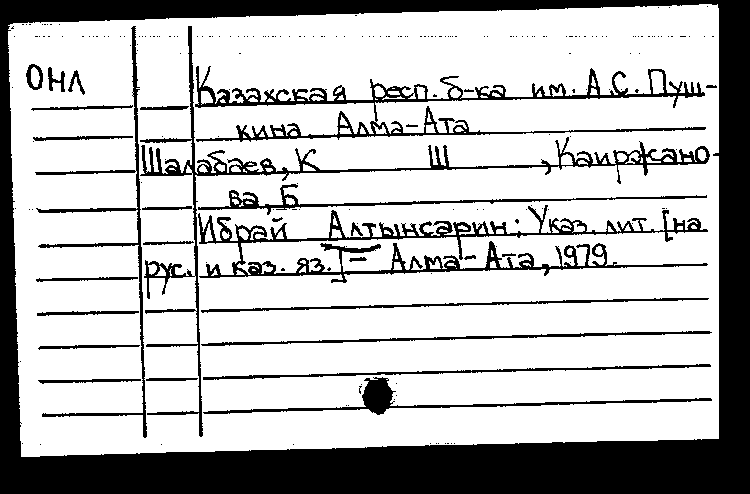 ОНЛ
Казахская респ. б-ка им. А.С. Пуш-
кина. Алма-Ата.
Шалабаев, К Ш , Каиржано-
ва, Б
Ибрай Алтынсарин: Указ. лит. [на
рус. и каз. яз.] – Алма-Ата, 1979.